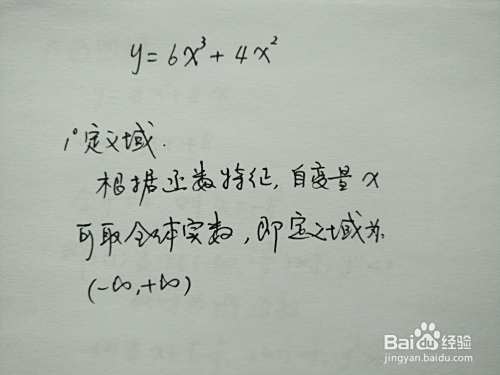 y=6x³+4x²
1°定义域.
根据函数特征,自变量x
可取全体实数,即定义域为
(-∞,+∞)
Baidu经验
jingyan.baidu.com